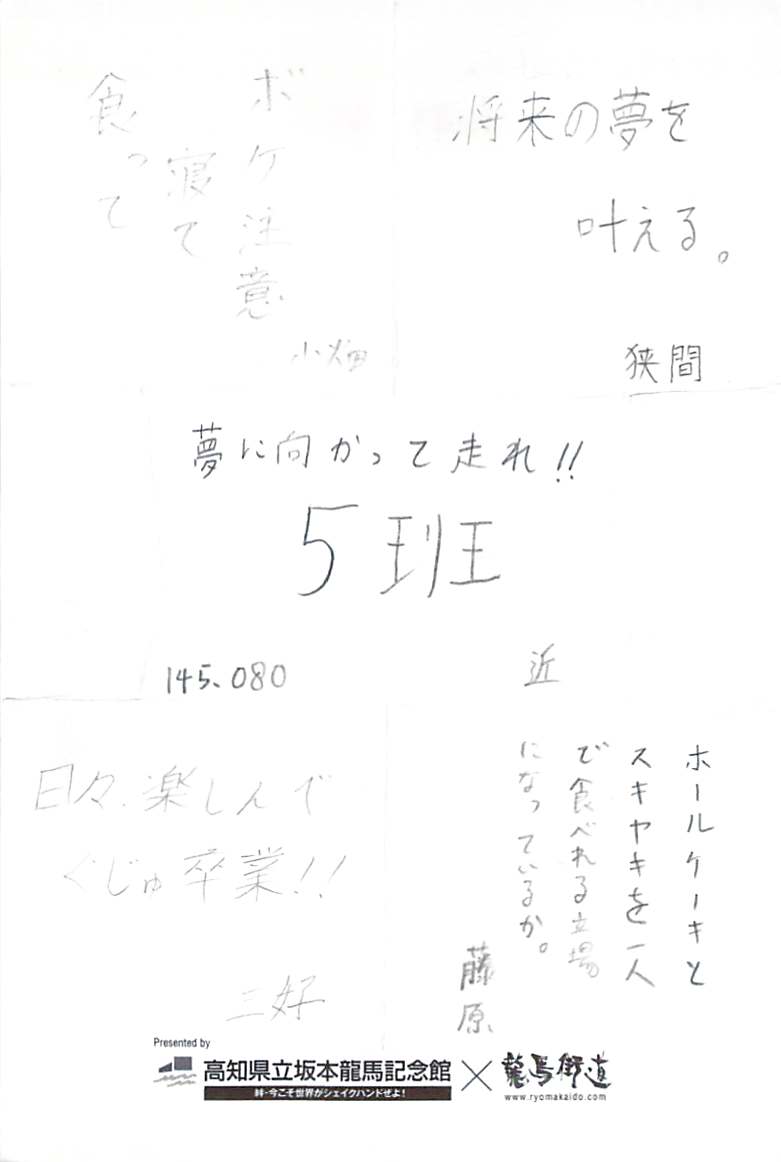 ボケ注意
寝て
食って
小畑
将来の夢を
叶える。
狭間
夢に向かって走れ!!
5班
145.080
近
日々、楽しんで
ぐじゅ卒業!!
三好
ホールケーキと
スキヤキを一人
で食べれる立場
になっているか。
藤原
Presented by
高知県立坂本龍馬記念館×龍馬街道
絆・今こそ世界がシェイクハンドせよ!
www.ryomakaido.com